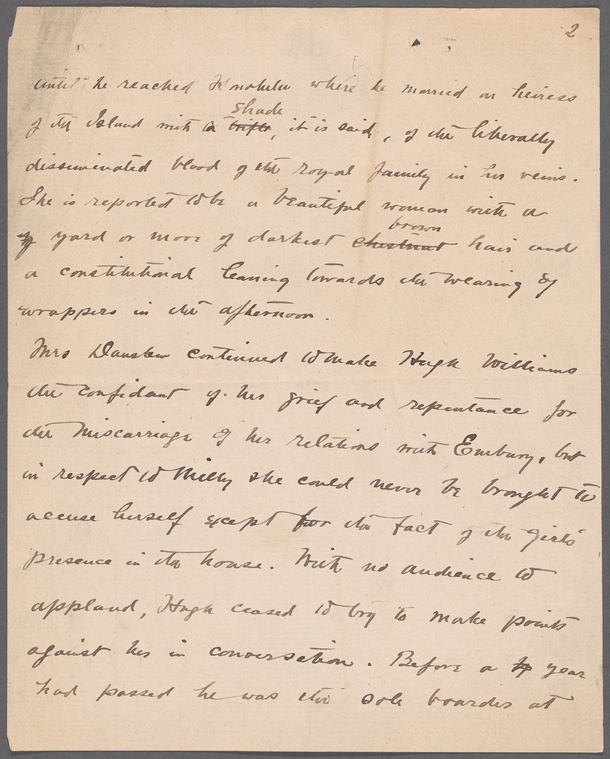 2
until he reached Honolulu where he married an heiress
shade
of the Island with a trifle, it is said, of the liberally
disseminated blood of the royal family in her veins.
She is reported to be a beautiful woman with a
brown
yard or more of darkest chestnut hair and
a constitutional leaning towards the wearing of
wrappers in the afternoon.
Mrs Dansken continued to make Hugh Williams
the confidant of her grief and repentance for
the miscarriage of her relations with Embury, but
in respect to Milly she could never be brought to
accuse herself except for the fact of the girls'
presence in the house. With no audience to
applaud, Hugh ceased to try to make points
against her in conversation. Before a year
had passed he was the sole boarder at